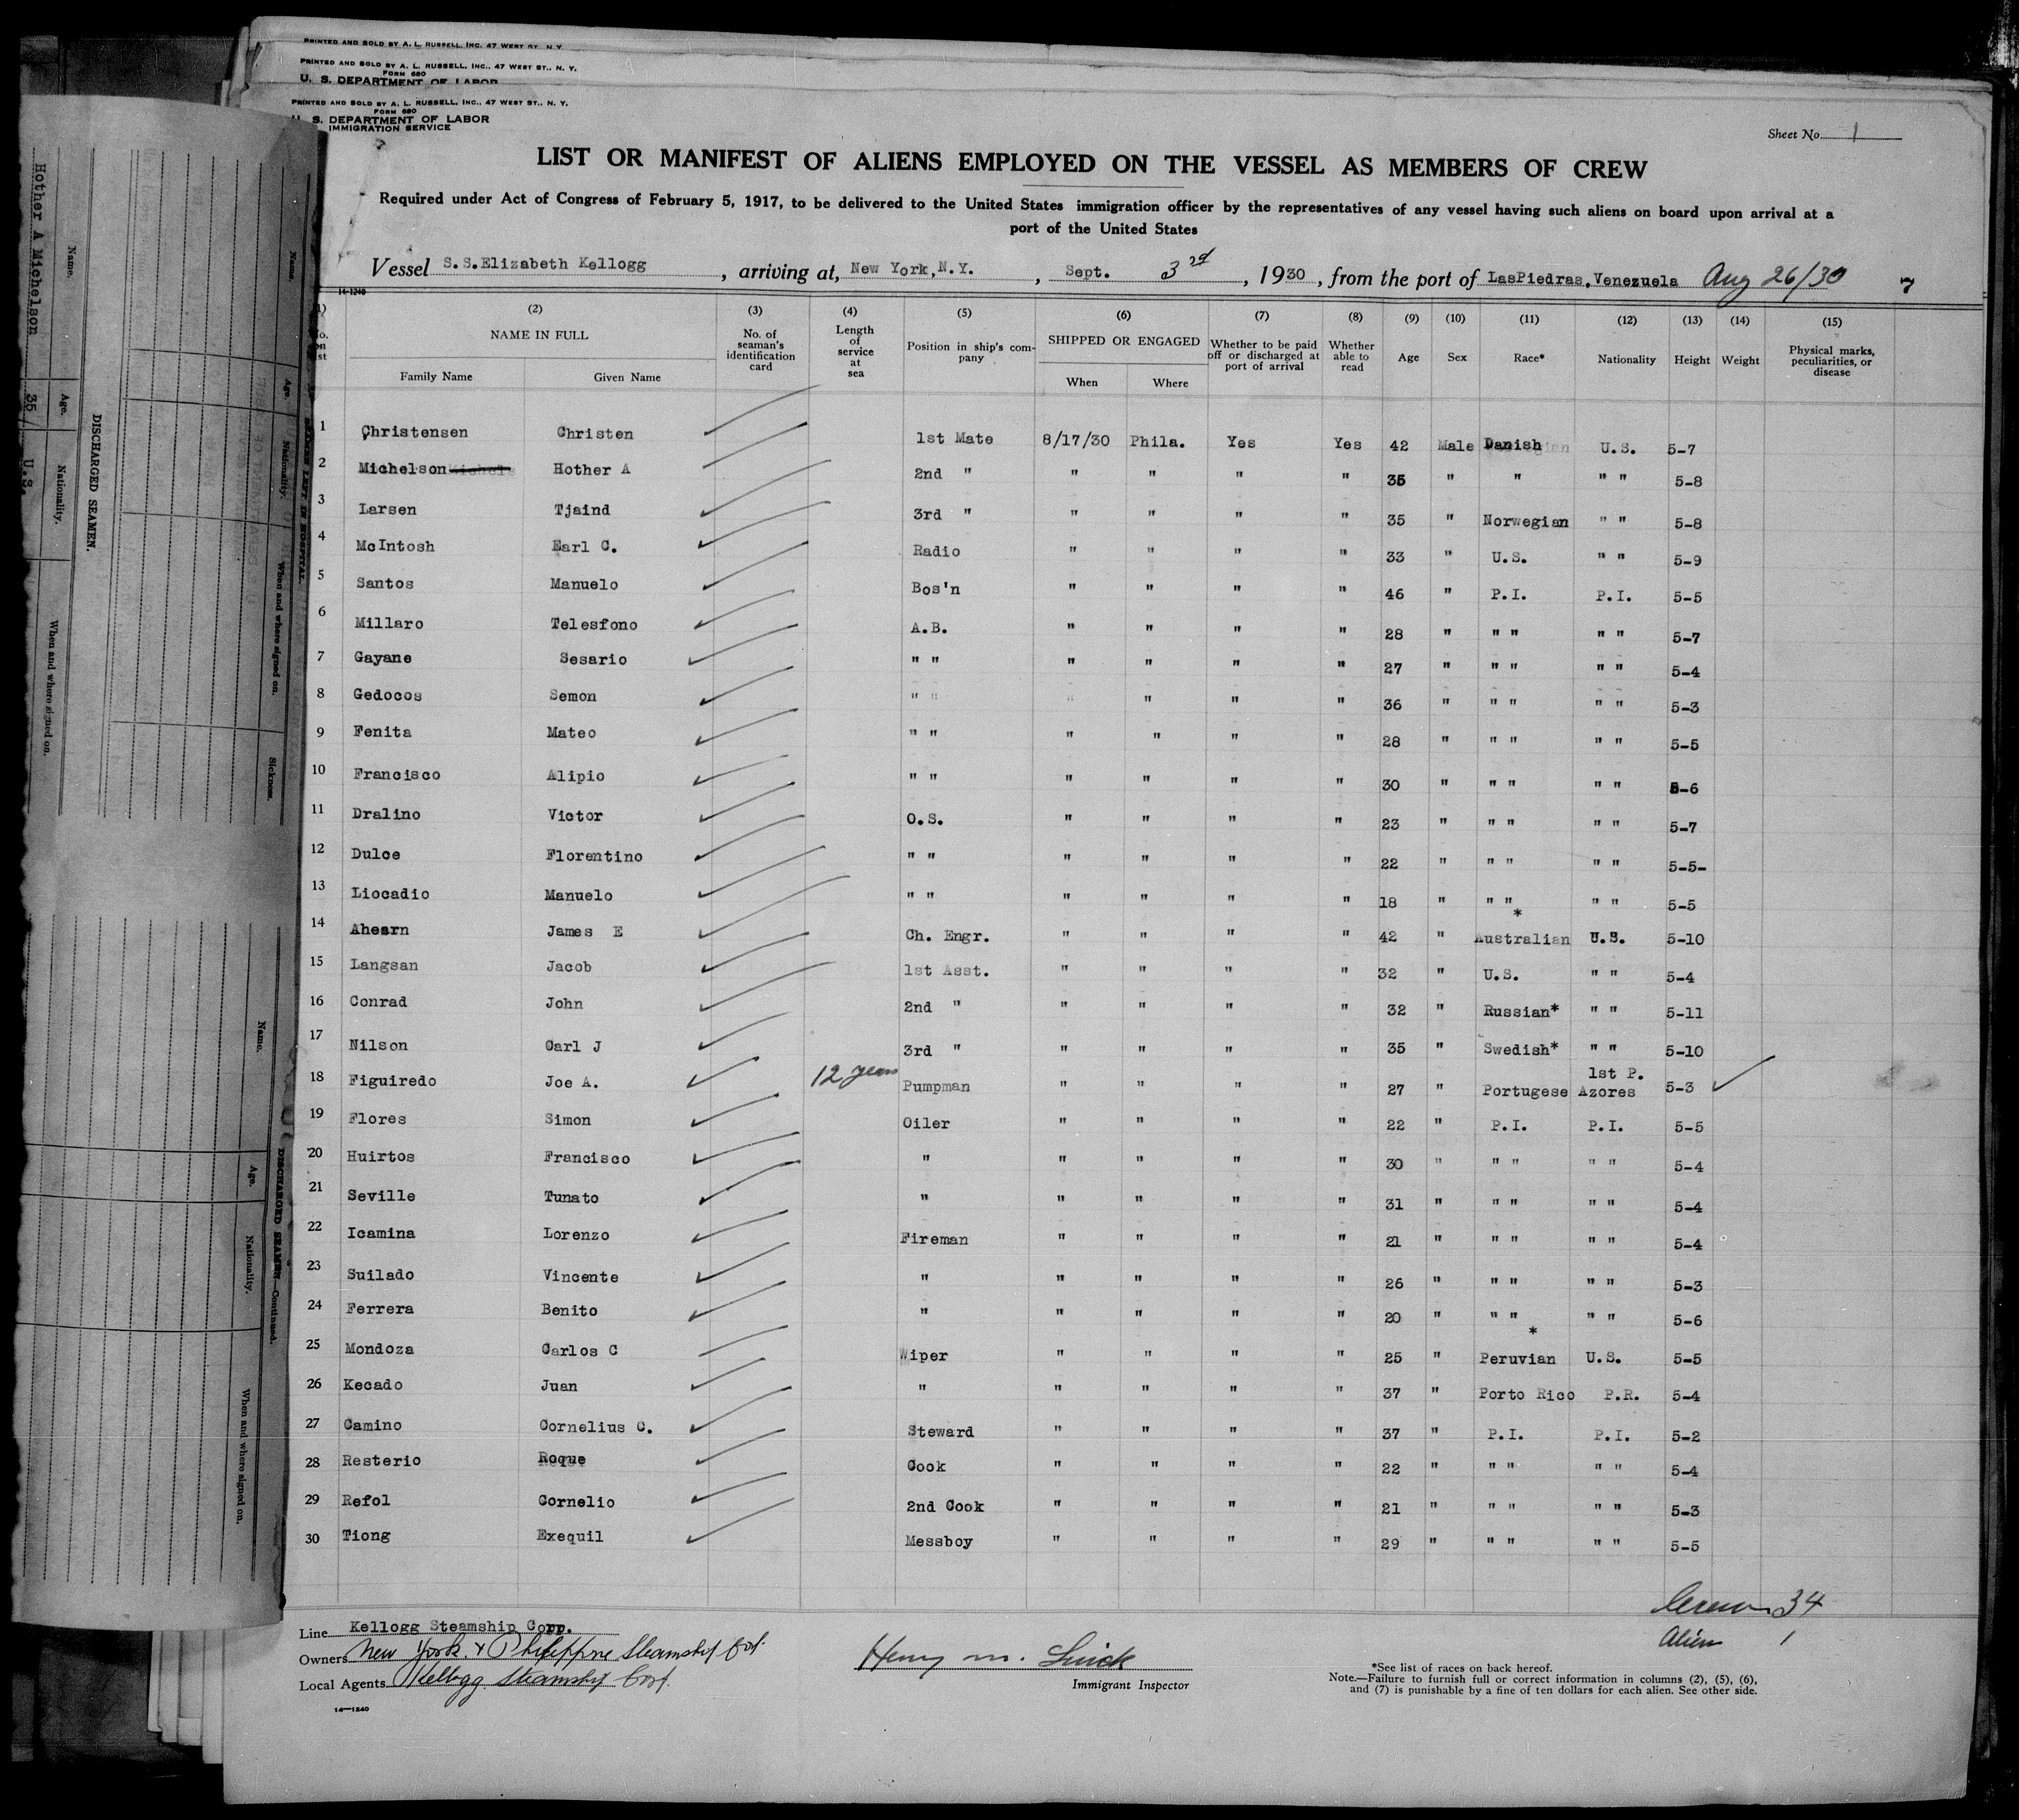 PRINTED AND SOLD BY A. L. RUSSELL, INC. 47 WEST ST., N. Y.
PRINTED AND SOLD BY A. L. RUSSELL, INC., 47 WEST ST., N. Y.
FORM 680
U. S. DEPARTMENT OF LABOR
PRINTED AND SOLD BY A. L. RUSSELL, INC., 47 WEST ST., N. Y.
FORM 680
U. S. DEPARTMENT OF LABOR
IMMIGRATION SERVICE
Sheet No. 1
LIST OR MANIFEST OF ALIENS EMPLOYED ON THE VESSEL AS MEMBERS OF CREW
Required under Act of Congress of February 5, 1917, to be delivered to the United States immigration officer by the representatives of any vessel having such aliens on board upon arrival at a
port of the United States
Vessel S.S.Elizabeth Kellogg, arriving at, New York, N.Y., Sept. 3rd, 1930, from the port of LasPiedras, Venezuela Aug 26/30 7
14-1240
(1) (2) (3) (4) (5) (6) (7) (8) (9) (10) (11) (12) (13) (14) (15)
No. on list NAME IN FULL Family Name Given Name No. of seaman's identification card Length of service at sea Position in ship's company SHIPPED OR ENGAGED When Where Whether to be paid off or discharged at port of arrival Whether able to read Age Sex Race* Nationality Height Weight Physical marks, peculiarities, or disease
1 Christensen Christen 1st Mate 8/17/30 Phila. Yes Yes 42 Male Danish U.S. 5-7
2 Michelson Hother A 2nd " " " " " 35 " " " " 5-8
3 Larsen Tjaind 3rd " " " " " 35 " Norwegian " " 5-8
4 McIntosh Earl C. Radio " " " " 33 " U.S. " " 5-9
5 Santos Manuelo Bos'n " " " " 46 " P.I. P.I. 5-5
6 Millaro Telesfono A.B. " " " " 28 " " " " " 5-7
7 Gayane Sesario " " " " " " 27 " " " " " 5-4
8 Gedocos Semon " " " " " " 36 " " " " " 5-3
9 Fenita Mateo " " " " " " 28 " " " " " 5-5
10 Francisco Alipio " " " " " " 30 " " " " " 5-6
11 Dralino Victor O.S. " " " " 23 " " " " " 5-7
12 Dulce Florentino " " " " " " 22 " " " " " 5-5-
13 Liocadio Manuelo " " " " " " 18 " " " " " 5-5
14 Ahearn James E Ch. Engr. " " " " 42 " *Australian U.S. 5-10
15 Langsan Jacob 1st Asst. " " " " 32 " U.S. " " 5-4
16 Conrad John 2nd " " " " " 32 " Russian* " " 5-11
17 Nilson Carl J 3rd " " " " " 35 " Swedish* " " 5-10
18 Figuiredo Joe A. 12 years Pumpman " " " " 27 " Portugese 1st P. Azores 5-3
19 Flores Simon Oiler " " " " 22 " P.I. P.I. 5-5
20 Huirtos Francisco " " " " " 30 " " " " " 5-4
21 Seville Tunato " " " " " 31 " " " " " 5-4
22 Icamina Lorenzo Fireman " " " " 21 " " " " " 5-4
23 Suilado Vincente " " " " " 26 " " " " " 5-3
24 Ferrera Benito " " " " " 20 " " " " " 5-6
25 Mondoza Carlos C Wiper " " " " 25 " *Peruvian U.S. 5-5
26 Kecado Juan " " " " " 37 " Porto Rico P.R. 5-4
27 Camino Cornelius C. Steward " " " " 37 " P.I. P.I. 5-2
28 Resterio Roque Cook " " " " 22 " " " " " 5-4
29 Refol Cornelio 2nd Cook " " " " 21 " " " " " 5-3
30 Tiong Exequil Messboy " " " " 29 " " " " " 5-5
Crew 34
Alien 1
Line Kellogg Steamship Corp.
Owners New York & Philippine Steamship Co.
Local Agents Kellogg Steamship Corp.
Henry M.
Immigrant Inspector
*See list of races on back hereof.
Note.—Failure to furnish full or correct information in columns (2), (5), (6),
and (7) is punishable by a fine of ten dollars for each alien. See other side.
14—1240
DISCHARGED SEAMEN.
Name. Age. Nationality. When and where signed on.
Hother A Michelson 35 U.S.
SEAMEN LEFT IN HOSPITAL.
Name. Age. Nationality. When and where signed on. Sickness.
DISCHARGED SEAMEN—Continued.
Name. Age. Nationality. When and where signed on.